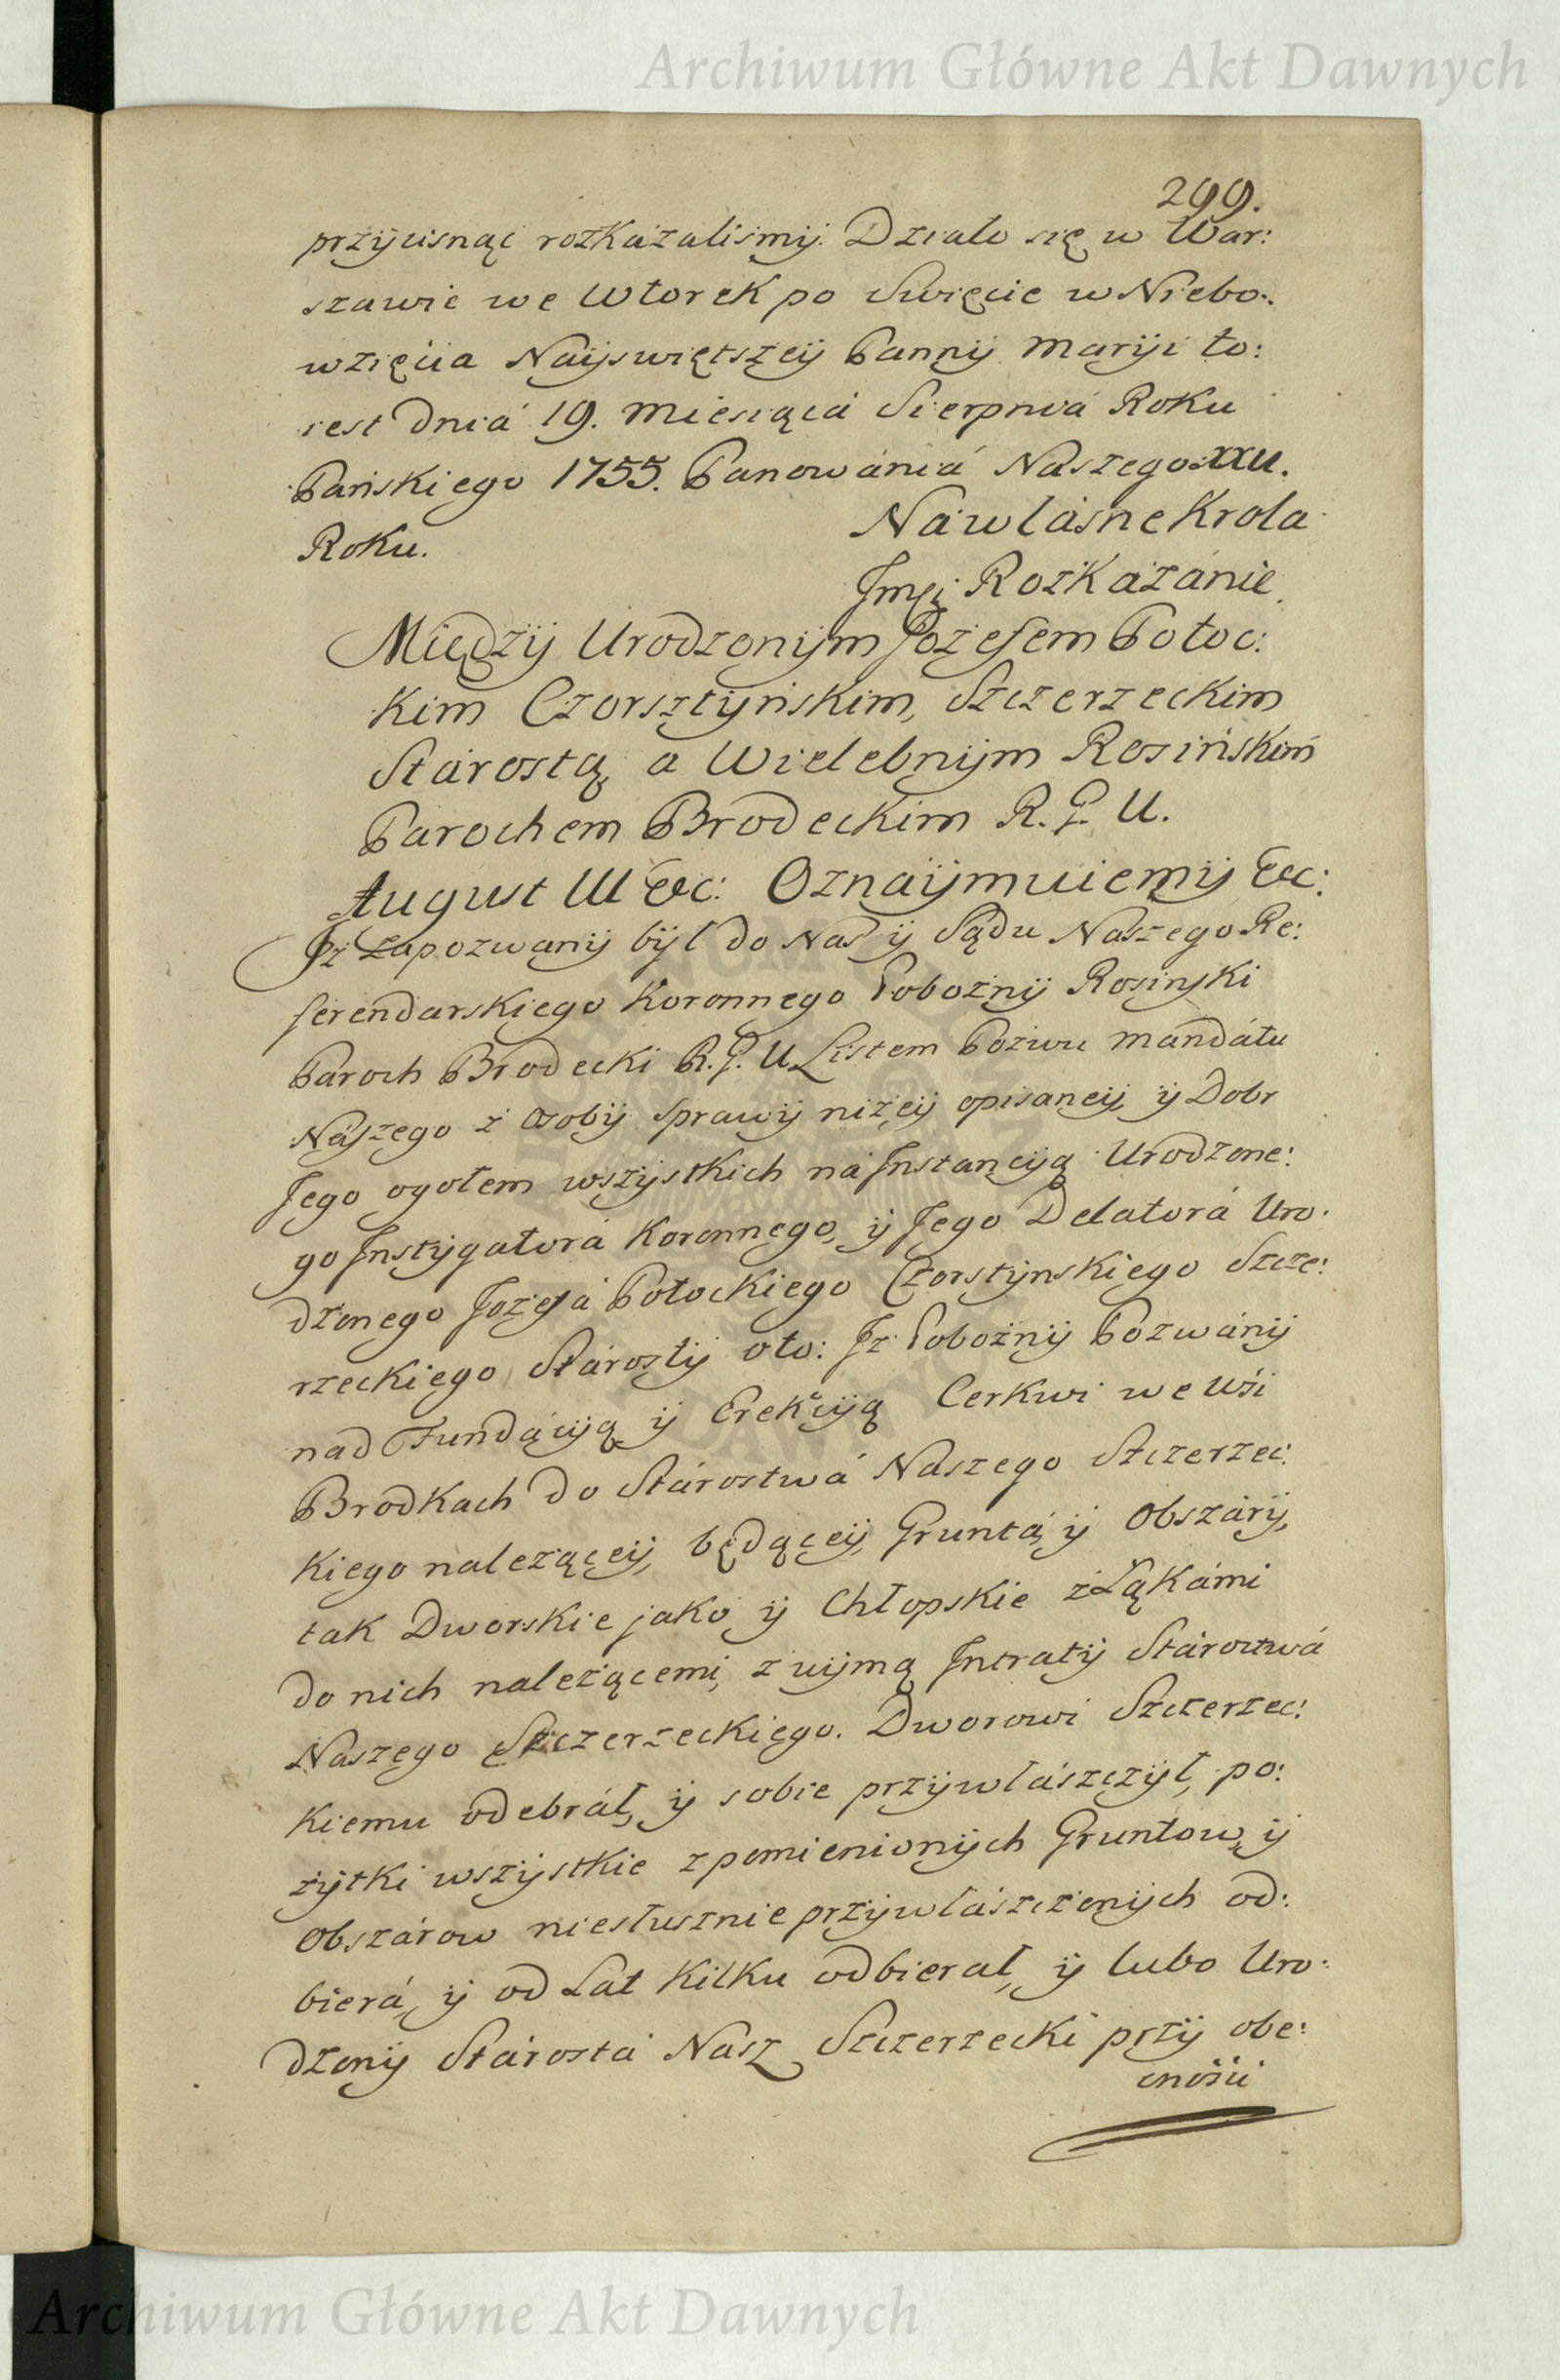 Archiwum Główne Akt Dawnych
299.
przÿcisnąć rozkazaliśmÿ. Działo się w War:
szawie we Wtorek po Swięcie w Niebo:
wzięcia Naÿswiętszeÿ Pannÿ Marÿi to:
iest Dniá 19. Miesiącá Sierpniá Roku
Pańskiego 1755. Panowániá Naszego XXII.
Roku.
Ná własne Krola
Jmçi Rozkazánie.
Międzÿ Urodzonÿm Jozefem Potoc:
kim Czorsztÿńskim, Szczerzeckim
Stárostą, a Wielebnÿm Rosińskim
Parochem Brodeckim R. G. U.
August III &c: Oznaÿmuiemÿ &c:
Iż zapozwanÿ bÿł do Nas ÿ Sądu Naszego Re:
ferendarskiego Koronnego Pobożnÿ Rosinski
Paroch Brodecki R. G. U. Listem Pozwu Mandátu
Nászego z Osobÿ Sprawÿ niżeÿ opisaneÿ, ÿ Dobr
Jego ogołem wszÿstkich ná Jnstancÿą Urodzone:
go Jnstÿgatorá Koronnego, ÿ Jego Delatorá Uro:
dzonego Jozefá Potockiego Czorstÿnskiego Szcze:
rzeckiego Stárostÿ oto: Iż Pobożnÿ Pozwánÿ
nad Fundácÿą ÿ Erekcÿą Cerkwi we Wśi
Brodkach do Stárostwá Naszego Szczerzec:
kiego należąceÿ, będąceÿ, Gruntá, ÿ Obszárÿ,
tak Dworskie jako ÿ Chłopskie z Łąkámi
do nich należącemi, z uÿmą Jntratÿ Stárostwá
Naszego Szczerzeckiego. Dworowi Szczerzec:
kiemu odebráł, ÿ sobie przÿwłászczÿł, po:
żÿtki wszÿstkie z pomienionÿch Gruntow, ÿ
Obszárow niesłusznie przÿwłászczonÿch od:
bierá, ÿ od Lat kilku odbierał, ÿ lubo Uro:
dzonÿ Stárostá Nasz Szczerzecki przÿ obe:
cnośći
Archiwum Główne Akt Dawnych